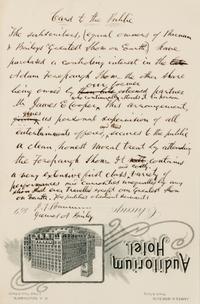 Card to the Public
The subscribers, (equal owners of "Barnum
& Bailey's Greatest Show on Earth,) have
purchased a controlling interest in the
Adam Forepaugh Show, the other share
being owned by our former esteemed partner
who continually attends it in person
Mr James E Cooper, This arrangement,
gives us personal supervision of all
entertainments offered, secures to the public
a clean honest moral treat by attending
the Forepaugh Show. It contains
a very extensive first class, variety of
performances and curiosities unequalled by any
show that ever travelled except our Greatest Show
on Earth. The public's obedient servants
P. T. Barnum
James A Bailey
Auditorium
Hotel.
Chicago,